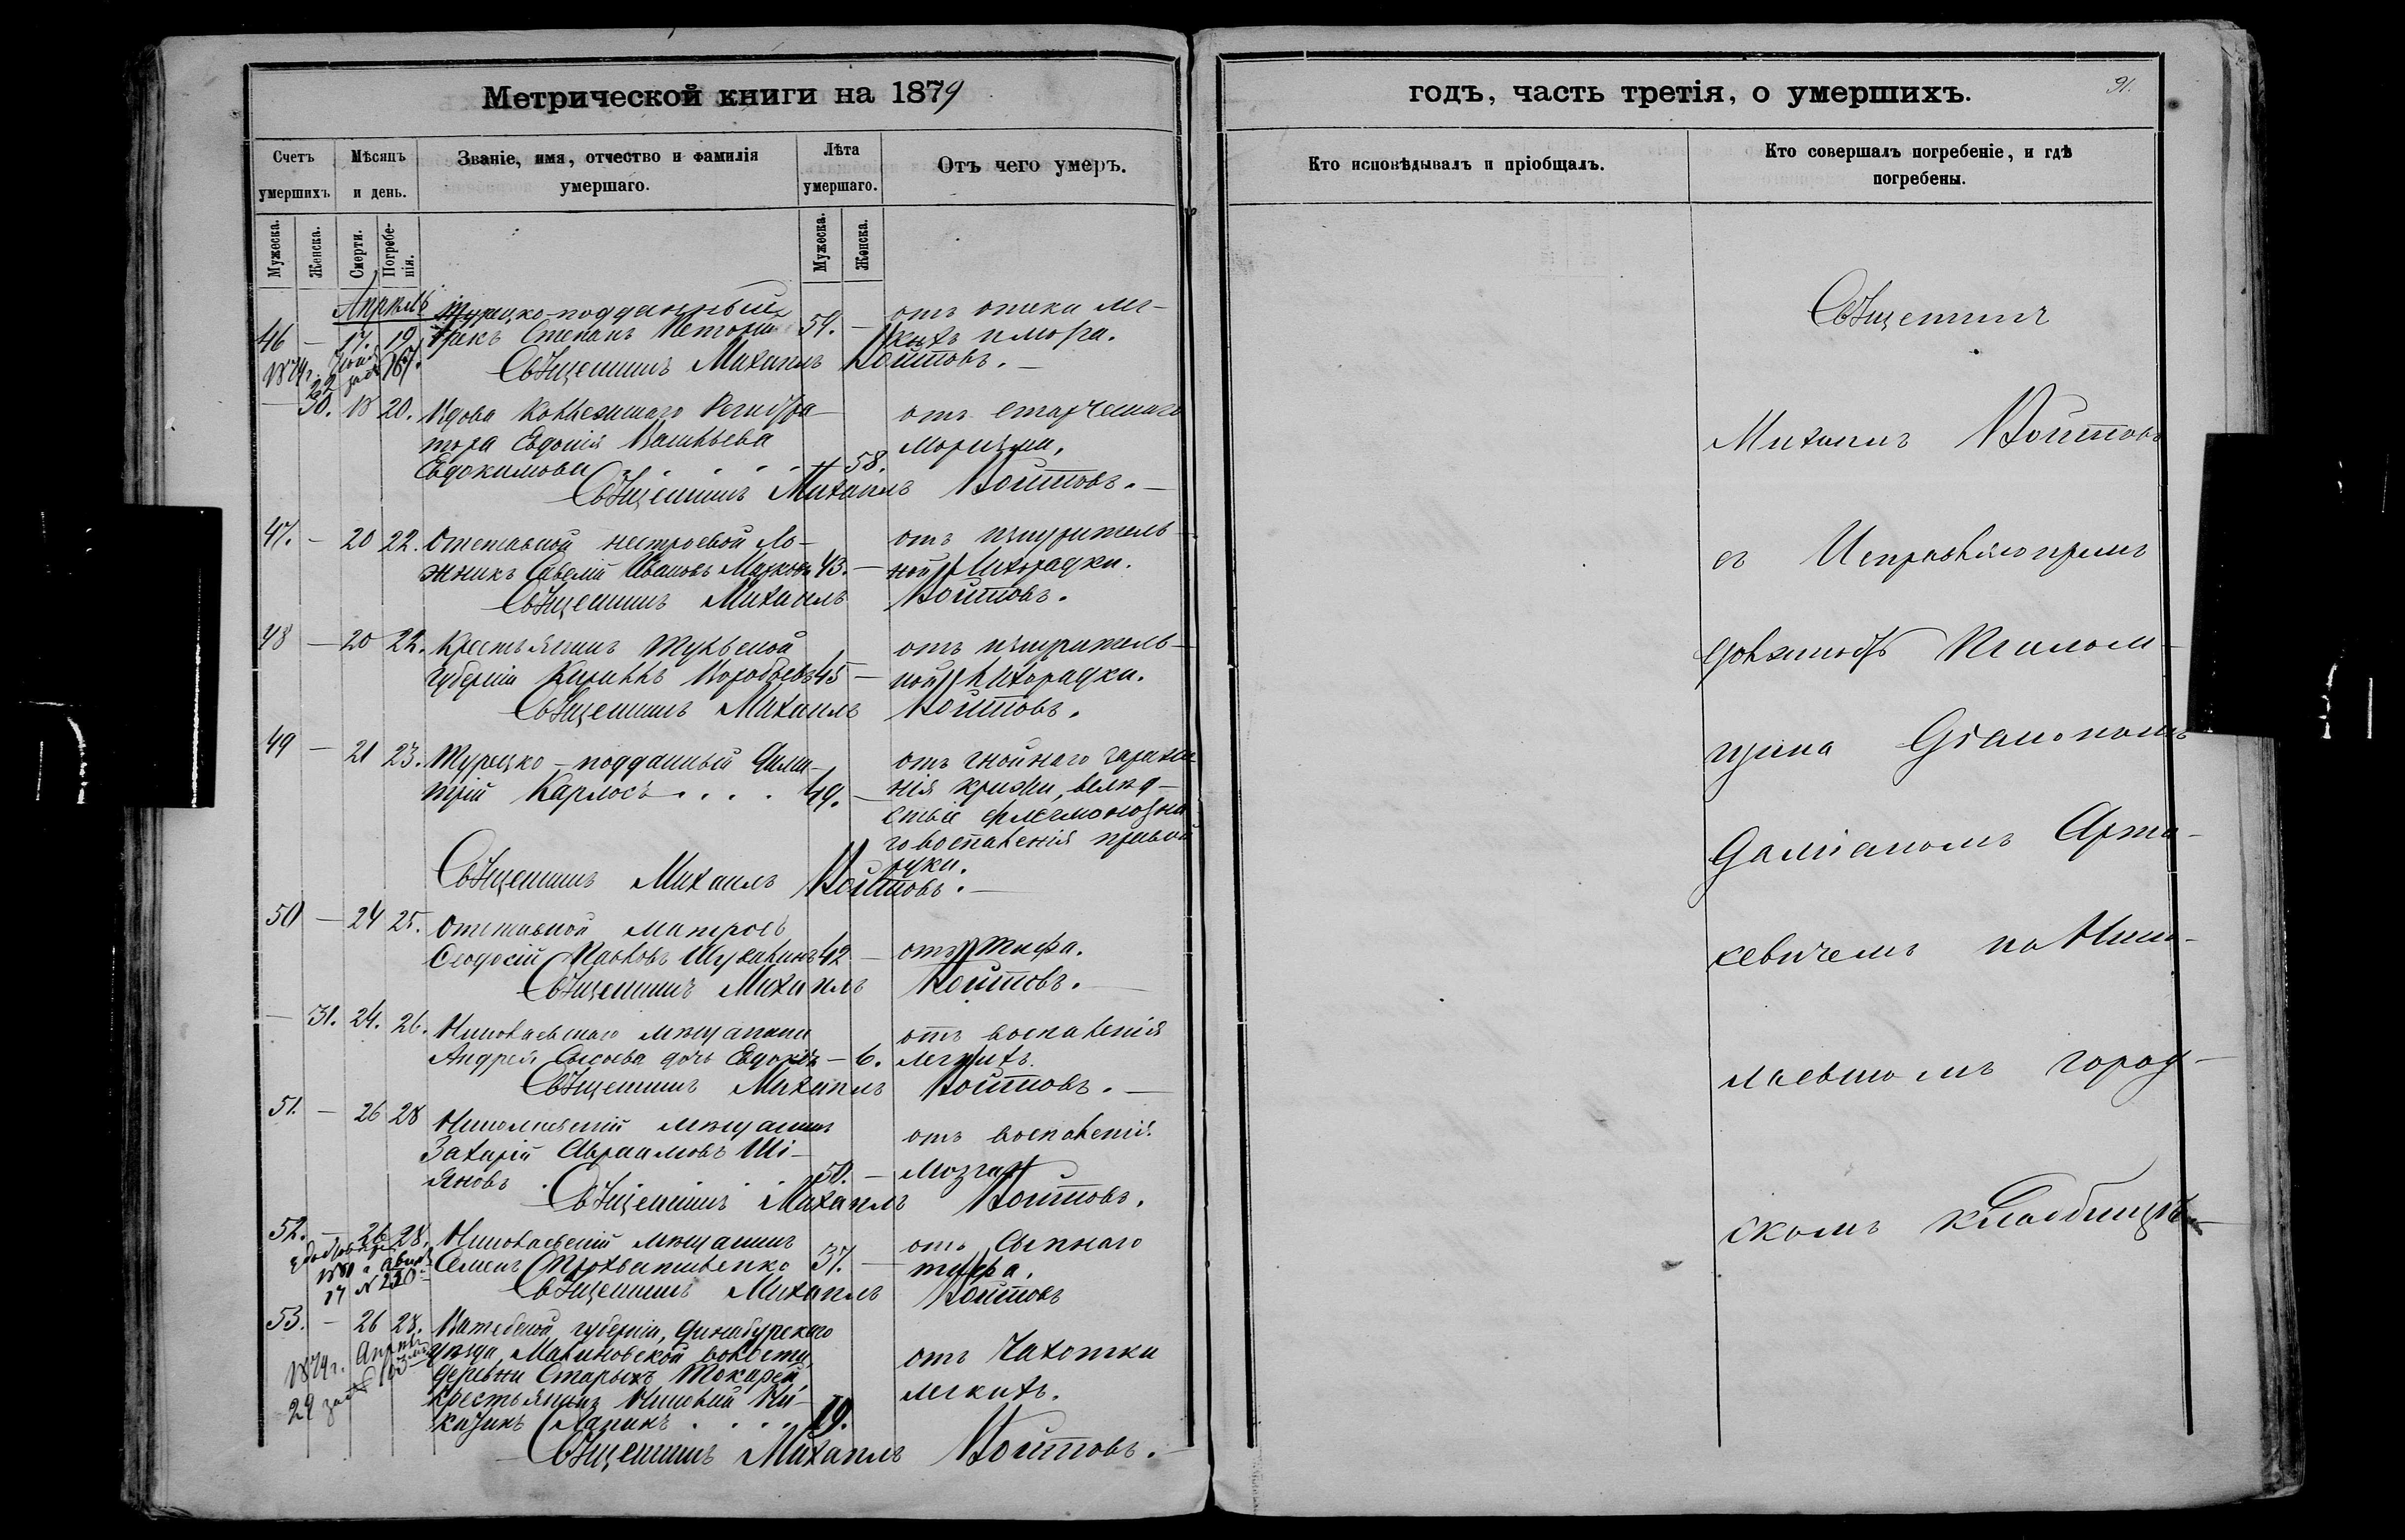 Метрической книги на 1879
Счетъ умершихъ
Мѣсяцъ и день.
Званіе, имя, отчество и фамилія умершаго.
Лѣта умершаго.
Отъ чего умеръ.
Мужеска.
Женска.
Смерти.
Погребенія.
Мужеска.
Женска.
Апрѣль
46 — 17. 19 Турецко-подданный
Грекъ Степанъ 54. —
отъ отека лег-
кихъ
Священникъ Михаилъ Войтовъ. —
— 30. 18 20. Вдова Коллежскаго Регистра-
тора Евдокія
Евдокимова . . . . 58.
отъ старческаго
Священникъ Михаилъ Войтовъ. —
47. — 20 22. Отставной нестроевой
Савелій Ивановъ Марковъ 43. —
отъ изнурitель-
ной лихорадки.
Священникъ Михаилъ Войтовъ.
48 — 20 22. Крестьянинъ Тульской
губерніи Кириллъ Воробьевъ 45 —
отъ изнуритель-
ной лихорадки.
Священникъ Михаилъ Войтовъ.
49 — 21 23. Турецко-подданный Дими-
трій Карлосъ . . . . 49. —
отъ гнойнаго зараже-
нія крови, вслѣд-
ствіе флегмонозна
го воспаленія правой
руки.
Священникъ Михаилъ Войтовъ. —
50 — 24 25. Отставной матросъ
Ѳеодосій 42 —
отъ тифа.
Священникъ Михаилъ Войтовъ. —
— 31. 24. 26. Николаевскаго мѣщанина
Андрея Сысоева дочь — 6.
отъ воспаленія
легкихъ.
Священникъ Михаилъ Войтовъ. —
51. — 26 28 Николаевскій мѣщанинъ
Захарій Авраамовъ Ші-
яновъ . . . 50. —
отъ воспаленія
мозга
Священникъ Михаилъ Войтовъ.
52. — 26 28. Николаевскій мѣщанинъ
Семенъ 37. —
отъ Сыпнаго
тифа.
Священникъ Михаилъ Войтовъ
53. — 26 28. Витебской губерніи, Динабургскаго
уѣзда, Малиновской волости,
деревни Старыхъ Токарей,
крестьянинъ
. . . . 19.
отъ Чахотки
легкихъ.
Священникъ Михаилъ Войтовъ. —
годъ, часть третія, о умершихъ.
91.
Кто исповѣдывалъ и пріобщалъ.
Кто совершалъ погребеніе, и гдѣ погребены.
Священникъ
Михаилъ Войтовъ
съ Исправляющимъ
должность Псалом-
щика Діакономъ
Даміаномъ Арти-
севичемъ на Нико-
лаевскомъ город-
скомъ кладбищѣ. —